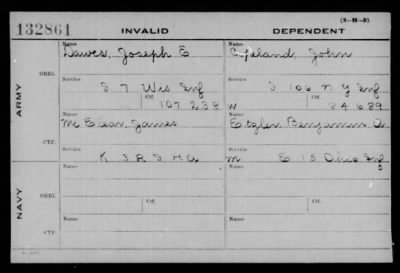 (3-H-5)
132861 INVALID DEPENDENT
Name Name
Dawes, Joseph E Copeland, John
ORIG.
Service Service
I 7 Wis Inf I 106 N Y Inf
Ctf. Ctf.
107 238 W 34 689
ARMY
Name Name
McClean, James Etzler Benjamin A
CTF.
Service Service
K 3 R S H A M E 15 Ohio Inf
Name Name
ORIG.
Ctf. Ctf.
NAVY
Name Name
CTF.